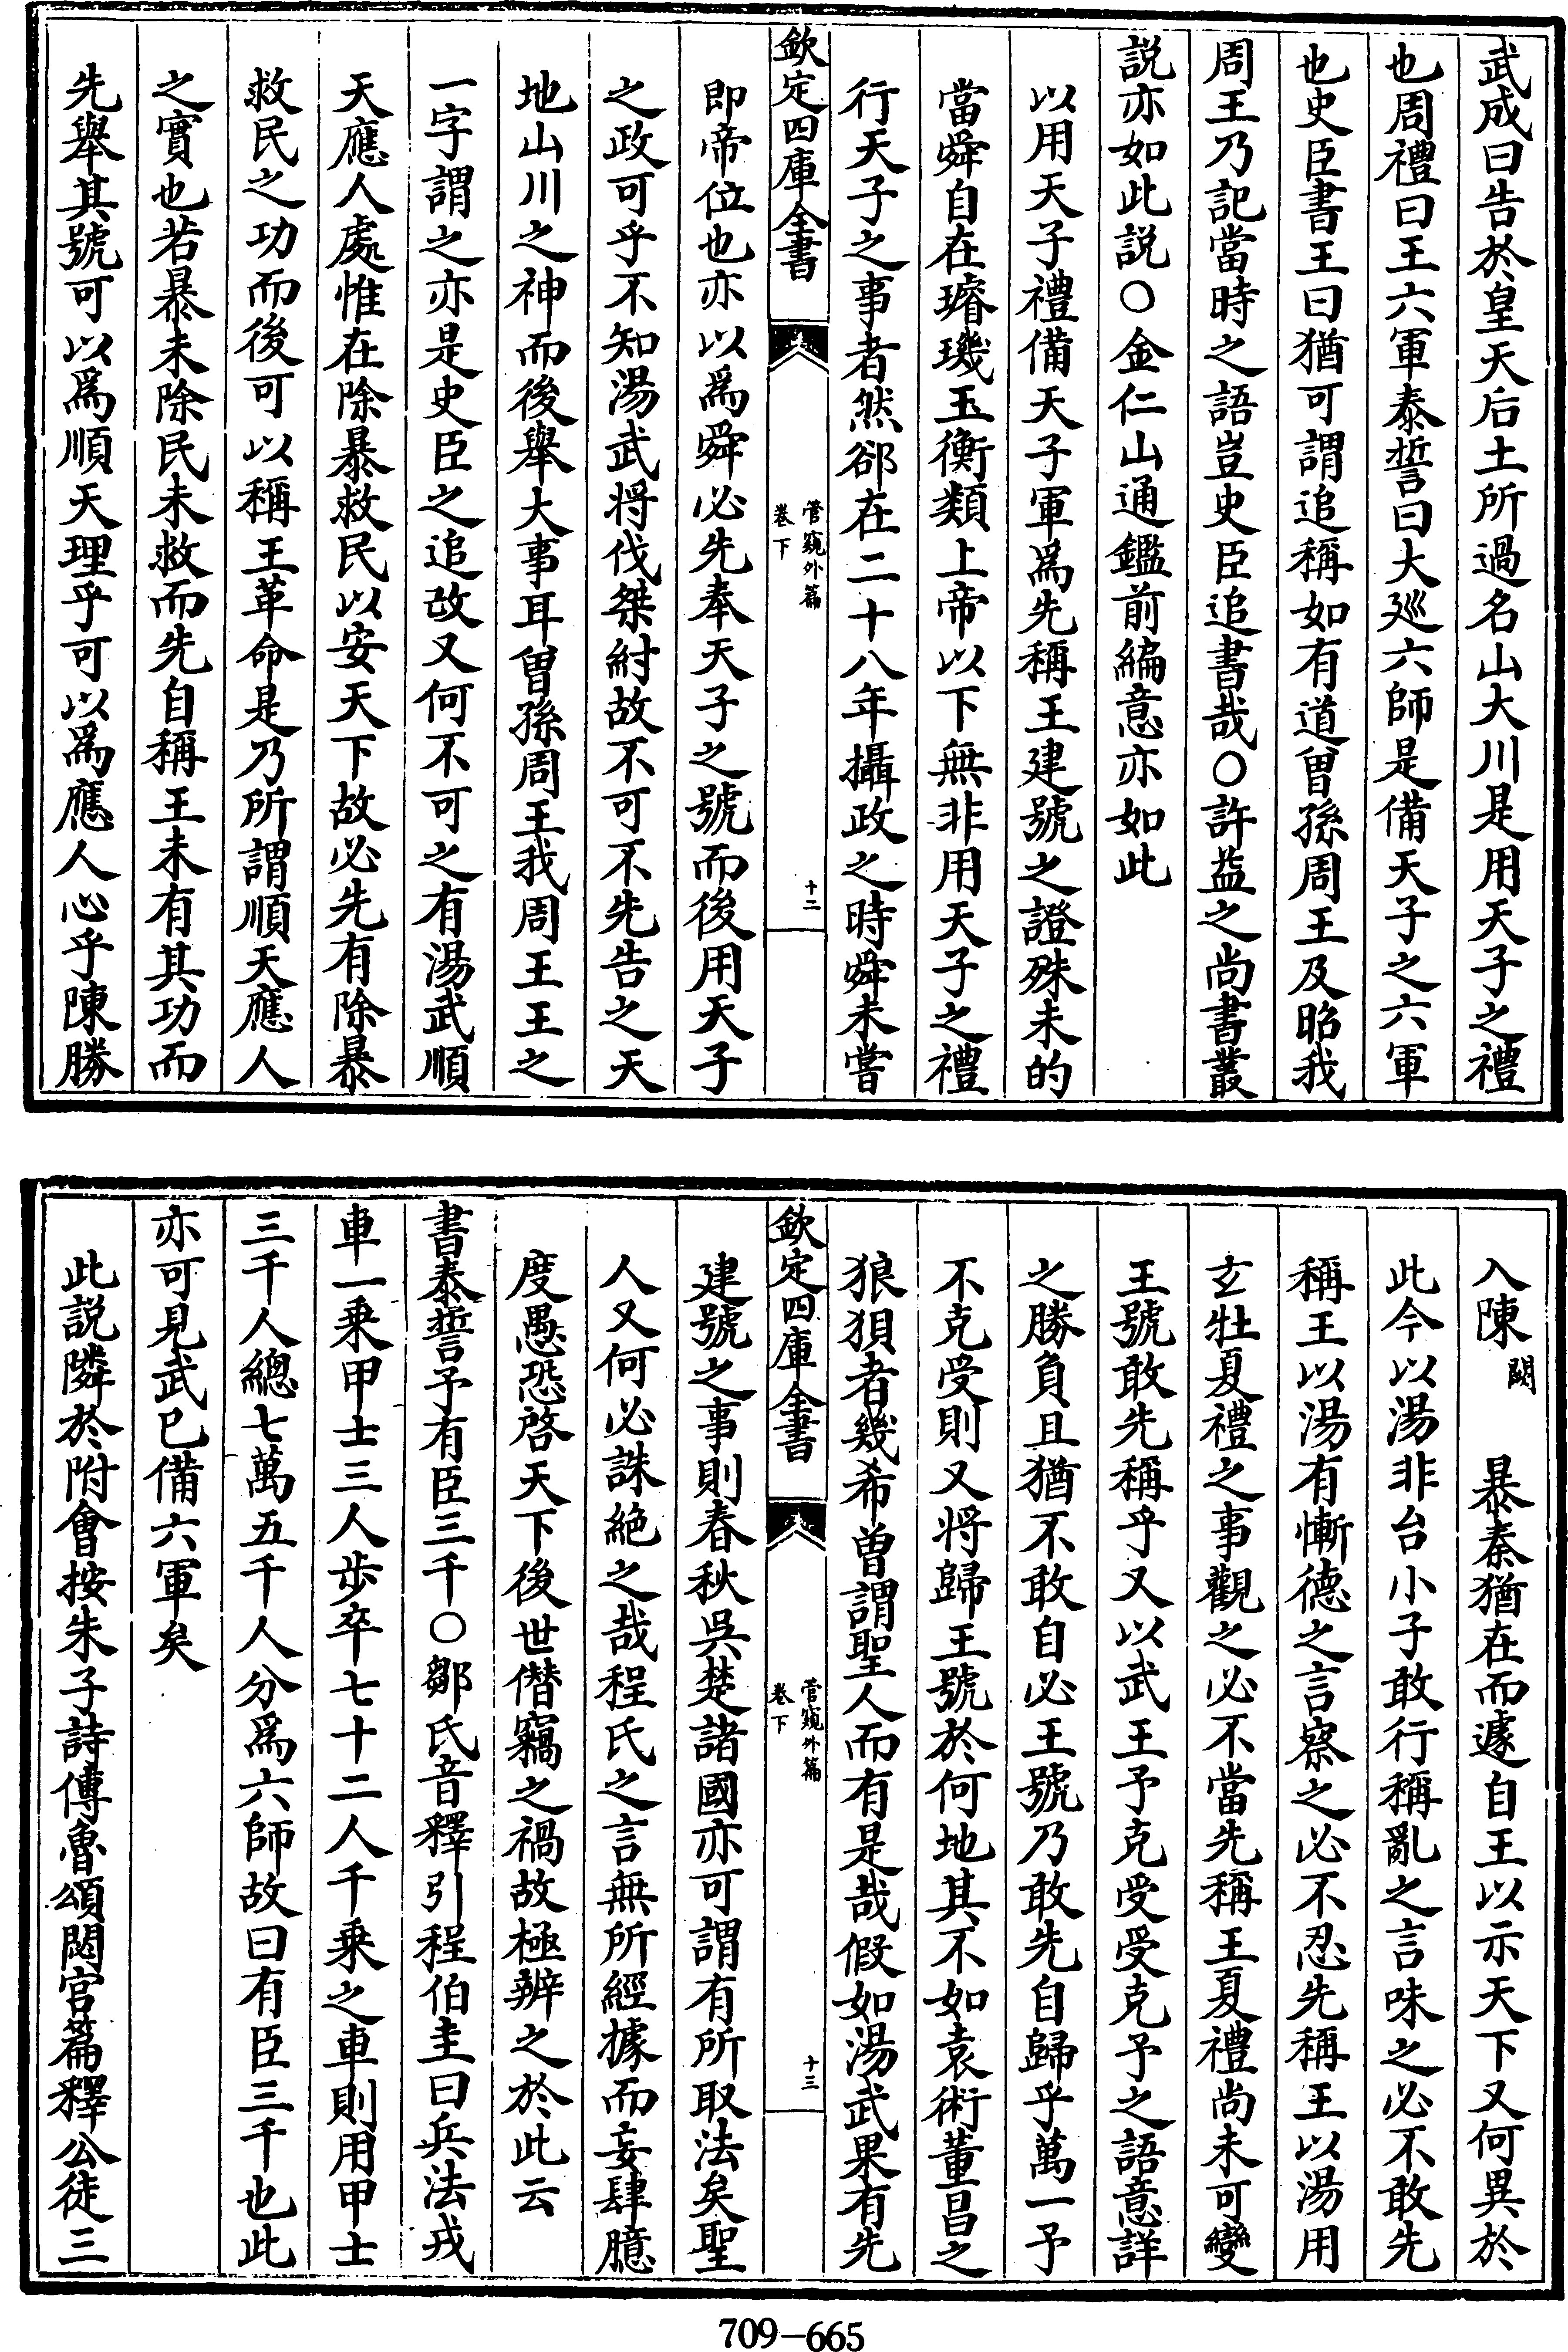 武成曰告於皇天后土所過名山大川是用天子之禮
也周禮曰王六軍泰誓曰大廵六師是備天子之六軍
也史臣書王曰猶可謂追稱如有道曾孫周王及昭我
周王乃記當時之語豈史臣追書哉○許益之尚書叢
説亦如此説○金仁山通鑑前編意亦如此
以用天子禮備天子軍為先稱王建號之證殊未的
當舜自在璿璣玉衡類上帝以下無非用天子之禮
行天子之事者然郤在二十八年攝政之時舜未嘗
欽定四庫全書
管窺外篇
卷下
十二
即帝位也亦以為舜必先奉天子之號而後用天子
之政可乎不知湯武将伐桀紂故不可不先告之天
地山川之神而後舉大事耳曾孫周王我周王王之
一字謂之亦是史臣之追改又何不可之有湯武順
天應人處惟在除暴救民以安天下故必先有除暴
救民之功而後可以稱王革命是乃所謂順天應人
之實也若暴未除民未救而先自稱王未有其功而
先舉其號可以為順天理乎可以為應人心乎陳勝
入陳闕暴秦猶在而遽自王以示天下又何異於
此今以湯非台小子敢行稱亂之言味之必不敢先
稱王以湯有慚德之言察之必不忍先稱王以湯用
玄牡夏禮之事觀之必不當先稱王夏禮尚未可變
王號敢先稱乎又以武王予克受受克予之語意詳
之勝負且猶不敢自必王號乃敢先自歸乎萬一予
不克受則又将歸王號於何地其不如袁術董昌之
狼狽者幾希曽謂聖人而有是哉假如湯武果有先
欽定四庫全書
管窺外篇
卷下
十三
建號之事則春秋吳楚諸國亦可謂有所取法矣聖
人又何必誅絶之哉程氏之言無所經據而妄肆臆
度愚恐啓天下後世僭竊之禍故極辨之於此云
書泰誓予有臣三千○鄒氏音釋引程伯圭曰兵法戎
車一乗甲士三人步卒七十二人千乗之車則用甲士
三千人總七萬五千人分為六師故曰有臣三千也此
亦可見武已備六軍矣
此説隣於附會按朱子詩傳魯頌閟宮篇釋公徒三
709-665